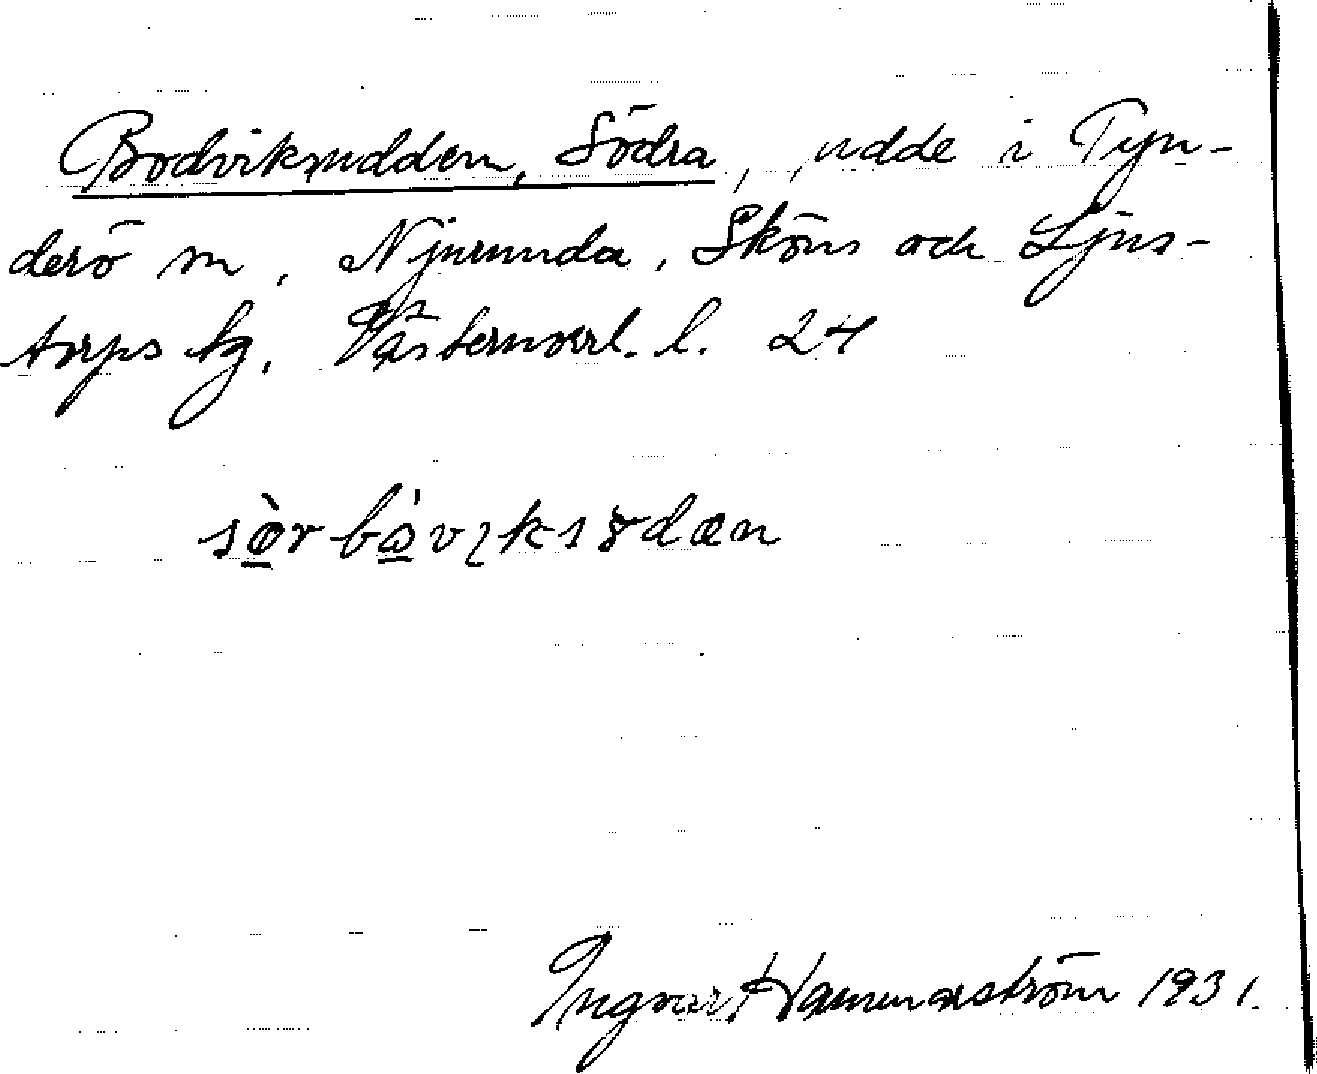 Bodviksudden, Södra, udde i Tyn-
derö sn, Njurunda, Sköns och Ljus-
torps tg, Västernorrl. l. 24
sö̀rbå̀viksɤdæn
Ingvar Hammarström 1931.